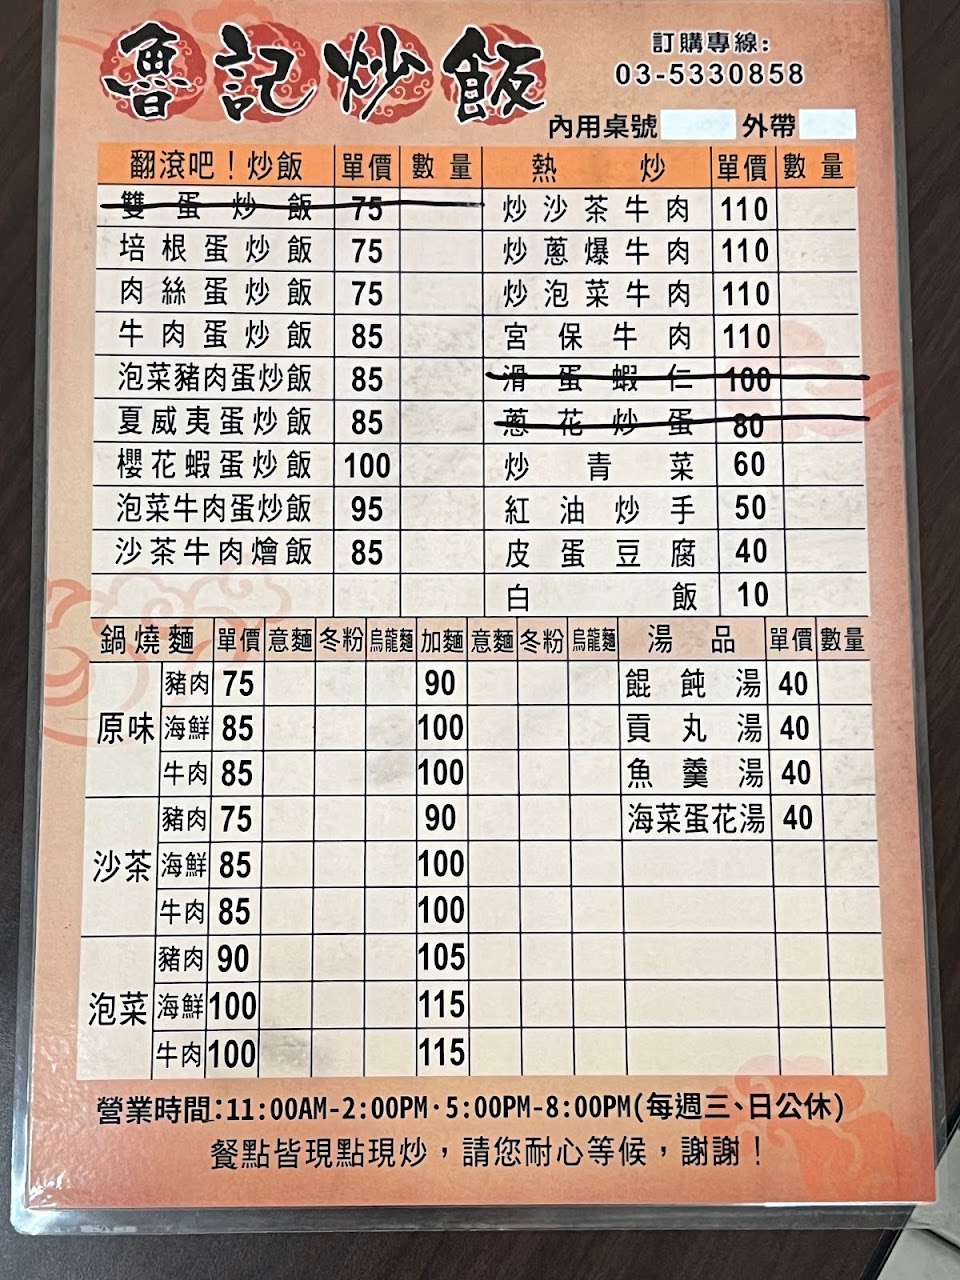 魯記炒飯
訂購專線:
03-5330858
內用桌號 外帶
翻滾吧！炒飯 單價 數量 熱炒 單價 數量
雙蛋炒飯 75 炒沙茶牛肉 110
培根蛋炒飯 75 炒蔥爆牛肉 110
肉絲蛋炒飯 75 炒泡菜牛肉 110
牛肉蛋炒飯 85 宮保牛肉 110
泡菜豬肉蛋炒飯 85 滑蛋蝦仁 100
夏威夷蛋炒飯 85 蔥花炒蛋 80
櫻花蝦蛋炒飯 100 炒青菜 60
泡菜牛肉蛋炒飯 95 紅油炒手 50
沙茶牛肉燴飯 85 皮蛋豆腐 40
白飯 10
鍋燒麵 單價 意麵 冬粉 烏龍麵 加麵 意麵 冬粉 烏龍麵 湯品 單價 數量
原味 豬肉 75 90 餛飩湯 40
海鮮 85 100 貢丸湯 40
牛肉 85 100 魚羹湯 40
沙茶 豬肉 75 90 海菜蛋花湯 40
海鮮 85 100
牛肉 85 100
泡菜 豬肉 90 105
海鮮 100 115
牛肉 100 115
營業時間:11:00AM-2:00PM·5:00PM-8:00PM(每週三、日公休)
餐點皆現點現炒，請您耐心等候，謝謝！